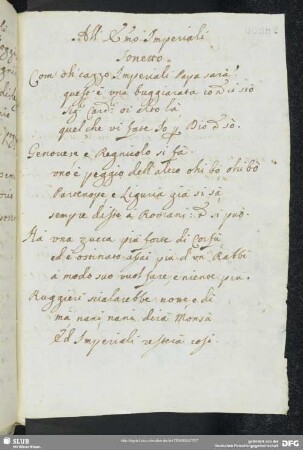 All' Emo Imperiali
Sonetto
Com' ohi cazzo Imperiali Papa sarà
questa è una buggiarata io dico sio
Sig.i Card.i oi altro là
quel che vi fate Io Dio sò.
Genovese e Regnicolo si fà
uno è peggio dell'altro ohi bò ohi bò
Partenope e Liguria già si sà
sempre disse a Romani: si può
Hà una zucca più forte di Corfù
ed è ostinato assai più d'un Rabbi
a modo suo vuol fare, e niente più
Ruggieri scialarebbe notte e dì
ma nanì nanì dirà Monsù
Ed Imperiali resterà così.
SLUB
Wir führen Wissen.
DFG